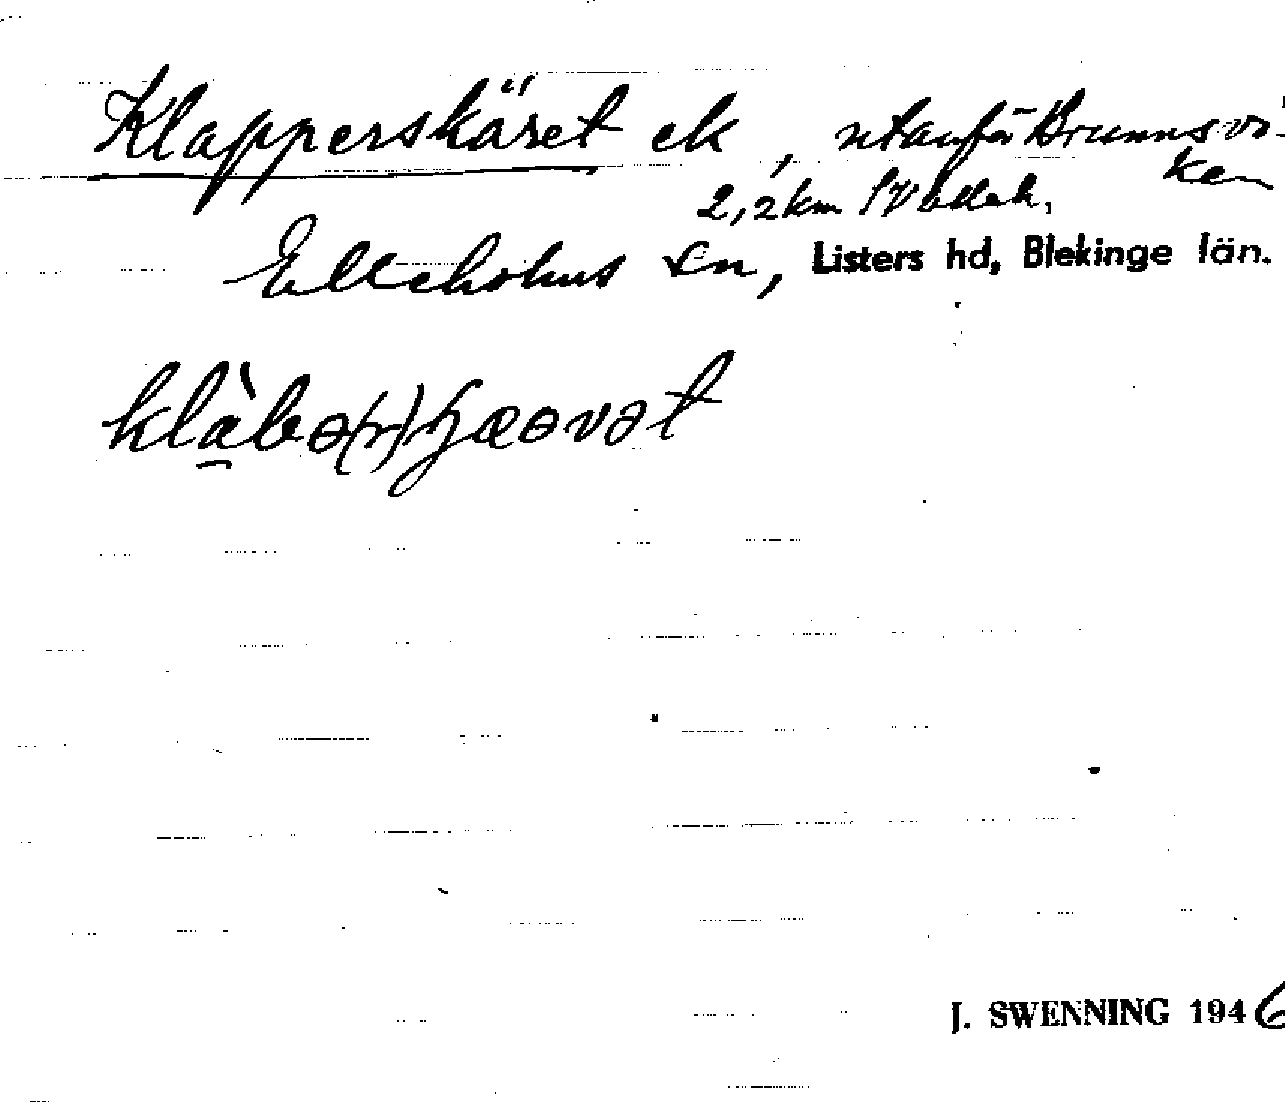 Klapperskäret ek, utanför Brunnsvi-
ken
2,2 km SV ballek,
Elleholms sn, Listers hd, Blekinge län.
klàbə(r)ʃæəvət
J. SWENNING 1946